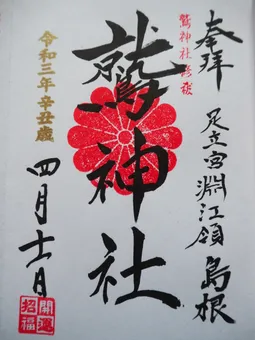 奉拝
足立宮淵江領 島根
鷲神社参拝
鷲神社
令和三年辛丑歳
四月十一日
開運
招福